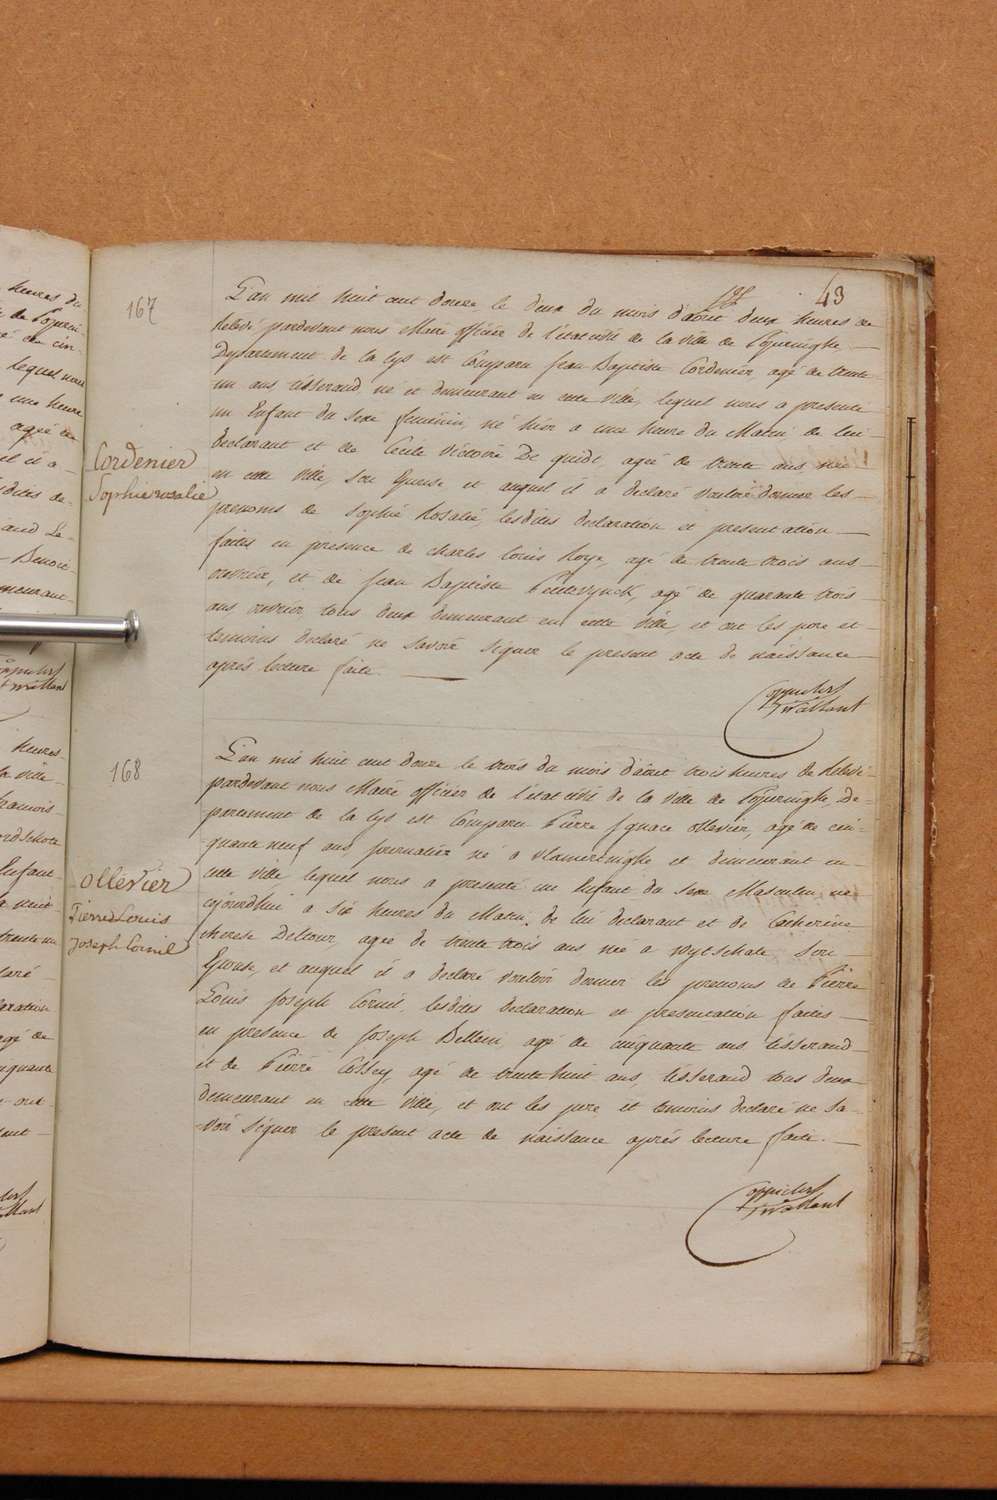 43
167
L'an mil huit cent douze le deux du mois d'août deux heures de
relevé pardevant nous Maire officier de l'état civil de la ville de Poperinghe
Departement de la Lys est Comparu Jean Baptiste Cordenier, agé de trente
un ans tisserand né et demeurant en cette ville, lequel nous a presenté
un Enfant du Sexe feminin, né hier a une heure du Matin de lui
declarant et de Cecile Victoire De quidt, agée de trente ans née
Cordenier
Sophie rosalie
en cette ville, son Epouse et auquel il a declaré vouloir donner les
prenoms de Sophie Rosalie, lesdites declaration et presentation
faites en presence de charles Louis Roye, agé de trente trois ans
ouvrier, et de Jean Baptiste agé de quarante trois
ans ouvrier tous deux demeurant en cette ville et ont les pere et
temoins declaré ne savoir signer le present acte de naissance
après lecture faite.
168
L'an mil huit cent douze le trois du mois d'août trois heures de relevé
pardevant nous Maire officier de l'état civil de la ville de Poperinghe, De-
partement de la Lys est Comparu Pierre Ignace Ollevier, agé de cin-
quante neuf ans, journalier né a Vlamertinghe et demeurant en
Ollevier
Pierre Louis
Joseph Cornil
cette ville lequel nous a presenté un Enfant du Sexe Masculin né
cejourdhui a six heures du Matin, de lui declarant et de Catherine
therese Deltour, agée de trente trois ans née a wytschate son
Epouse, et auquel il a declaré vouloir donner les prenoms de Pierre
Louis Joseph Cornil, lesdites declaration et presentation faites
en presence de Joseph Bellein, agé de cinquante ans tisserand
et de Pierre Cossey, agé de trente huit ans, tisserand tous deux
demeurant en cette ville, et ont les pere et temoins declaré ne sa-
voir signer le present acte de naissance après lecture faite.